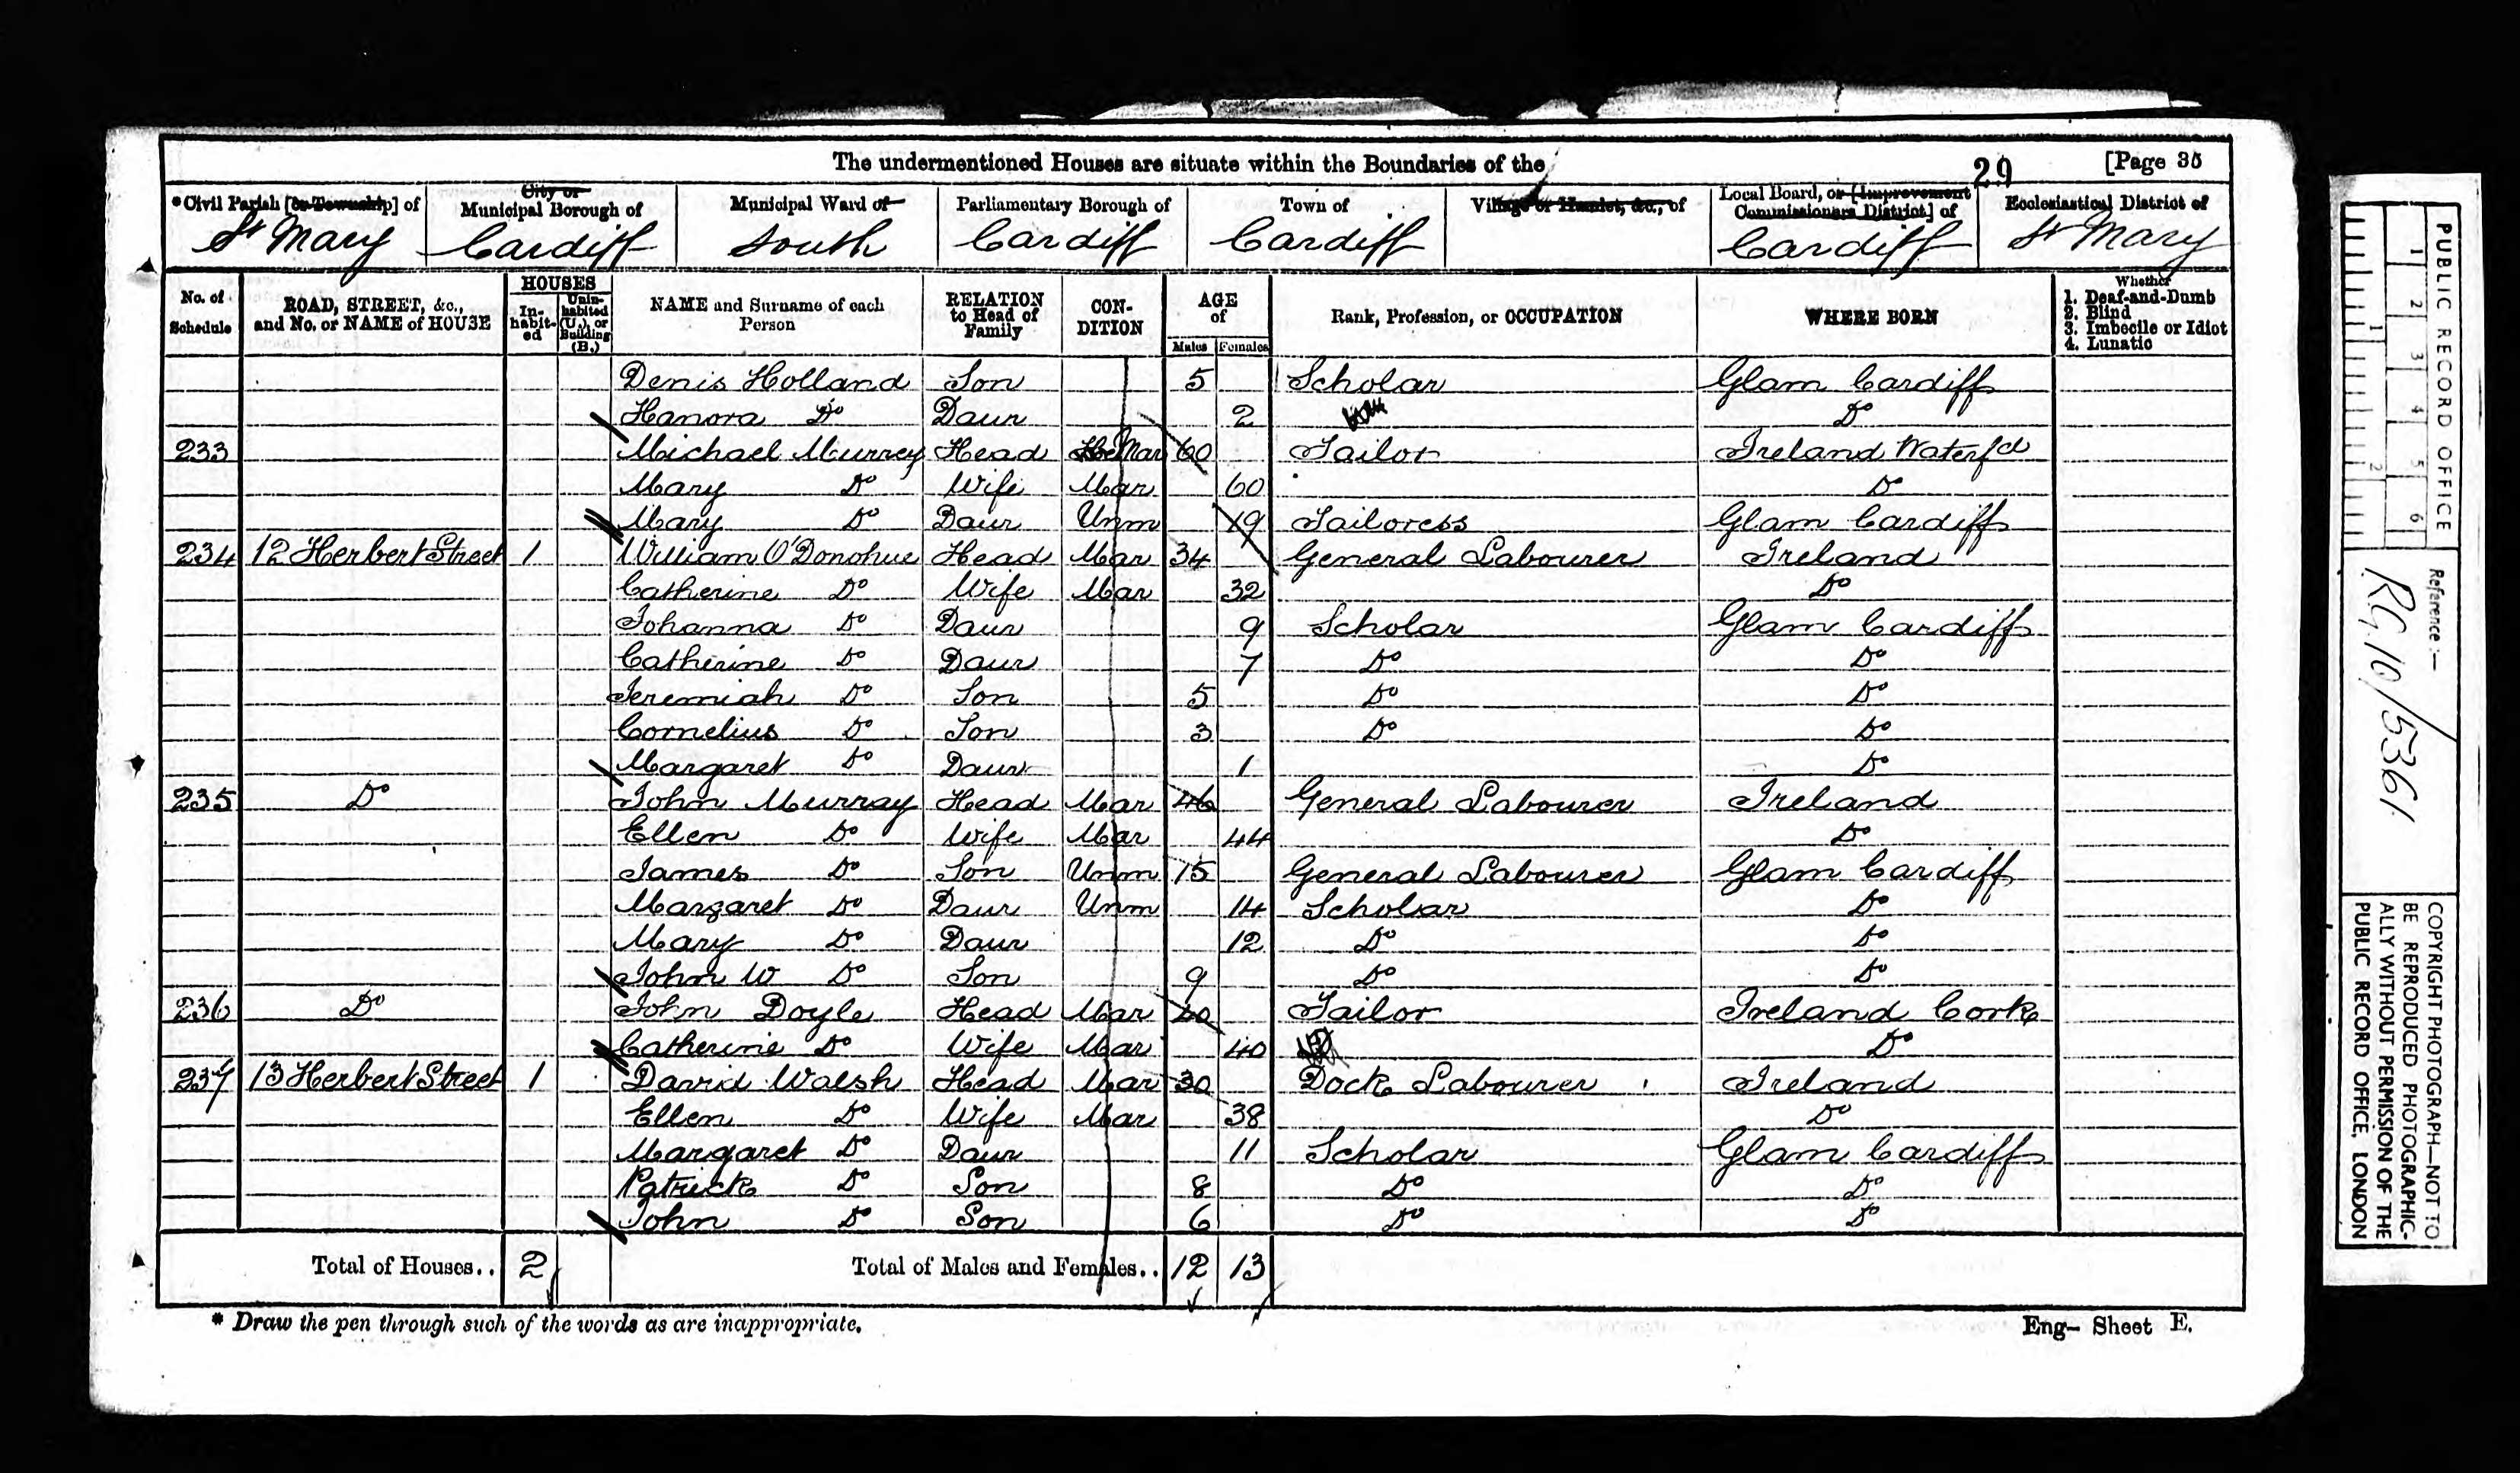 The undermentioned Houses are situate within the Boundaries of the
29
[Page 35
*Civil Parish [or Township] of
St Mary
City or Municipal Borough of
Cardiff
Municipal Ward of
South
Parliamentary Borough of
Cardiff
Town of
Cardiff
Village or Hamlet, &c., of
Local Board, or [Improvement Commissioners District] of
Cardiff
Ecclesiastical District of
St Mary
No. of Schedule
ROAD, STREET, &c., and No. or NAME of HOUSE
HOUSES
In-habit-ed
Unin-habited (U.), or Building (B.)
NAME and Surname of each Person
RELATION to Head of Family
CON-DITION
AGE of
Males
Females
Rank, Profession, or OCCUPATION
WHERE BORN
Whether
1. Deaf-and-Dumb
2. Blind
3. Imbecile or Idiot
4. Lunatic
Denis Holland Son 5 Scholar Glam Cardiff
Hanora Do Daur 2 Do
233 Michael Murrey Head Mar 60 Tailor Ireland Waterfd
Mary Do Wife Mar 60 Do
Mary Do Daur Unm 19 Tailoress Glam Cardiff
234 12 Herbert Street 1 William O'Donohue Head Mar 34 General Labourer Ireland
Catherine Do Wife Mar 32 Do
Johanna Do Daur 9 Scholar Glam Cardiff
Catherine Do Daur 7 Do Do
Jeremiah Do Son 5 Do Do
Cornelius Do Son 3 Do Do
Margaret Do Daur 1 Do
235 Do John Murray Head Mar 46 General Labourer Ireland
Ellen Do Wife Mar 44 Do
James Do Son Unm 15 General Labourer Glam Cardiff
Margaret Do Daur Unm 14 Scholar Do
Mary Do Daur 12 Do Do
John W Do Son 9 Do Do
236 Do John Doyle Head Mar 40 Tailor Ireland Cork
Catherine Do Wife Mar 40 Do
237 13 Herbert Street 1 David Walsh Head Mar 30 Dock Labourer Ireland
Ellen Do Wife Mar 38 Do
Margaret Do Daur 11 Scholar Glam Cardiff
Patrick Do Son 8 Do Do
John Do Son 6 Do Do
Total of Houses.. 2
Total of Males and Females.. 12 13
* Draw the pen through such of the words as are inappropriate.
Eng- Sheet E.
PUBLIC RECORD OFFICE
1 2 3 4 5 6
1 2
Reference:-
RG.10/5361
COPYRIGHT PHOTOGRAPH—NOT TO
BE REPRODUCED PHOTOGRAPHIC-
ALLY WITHOUT PERMISSION OF THE
PUBLIC RECORD OFFICE, LONDON